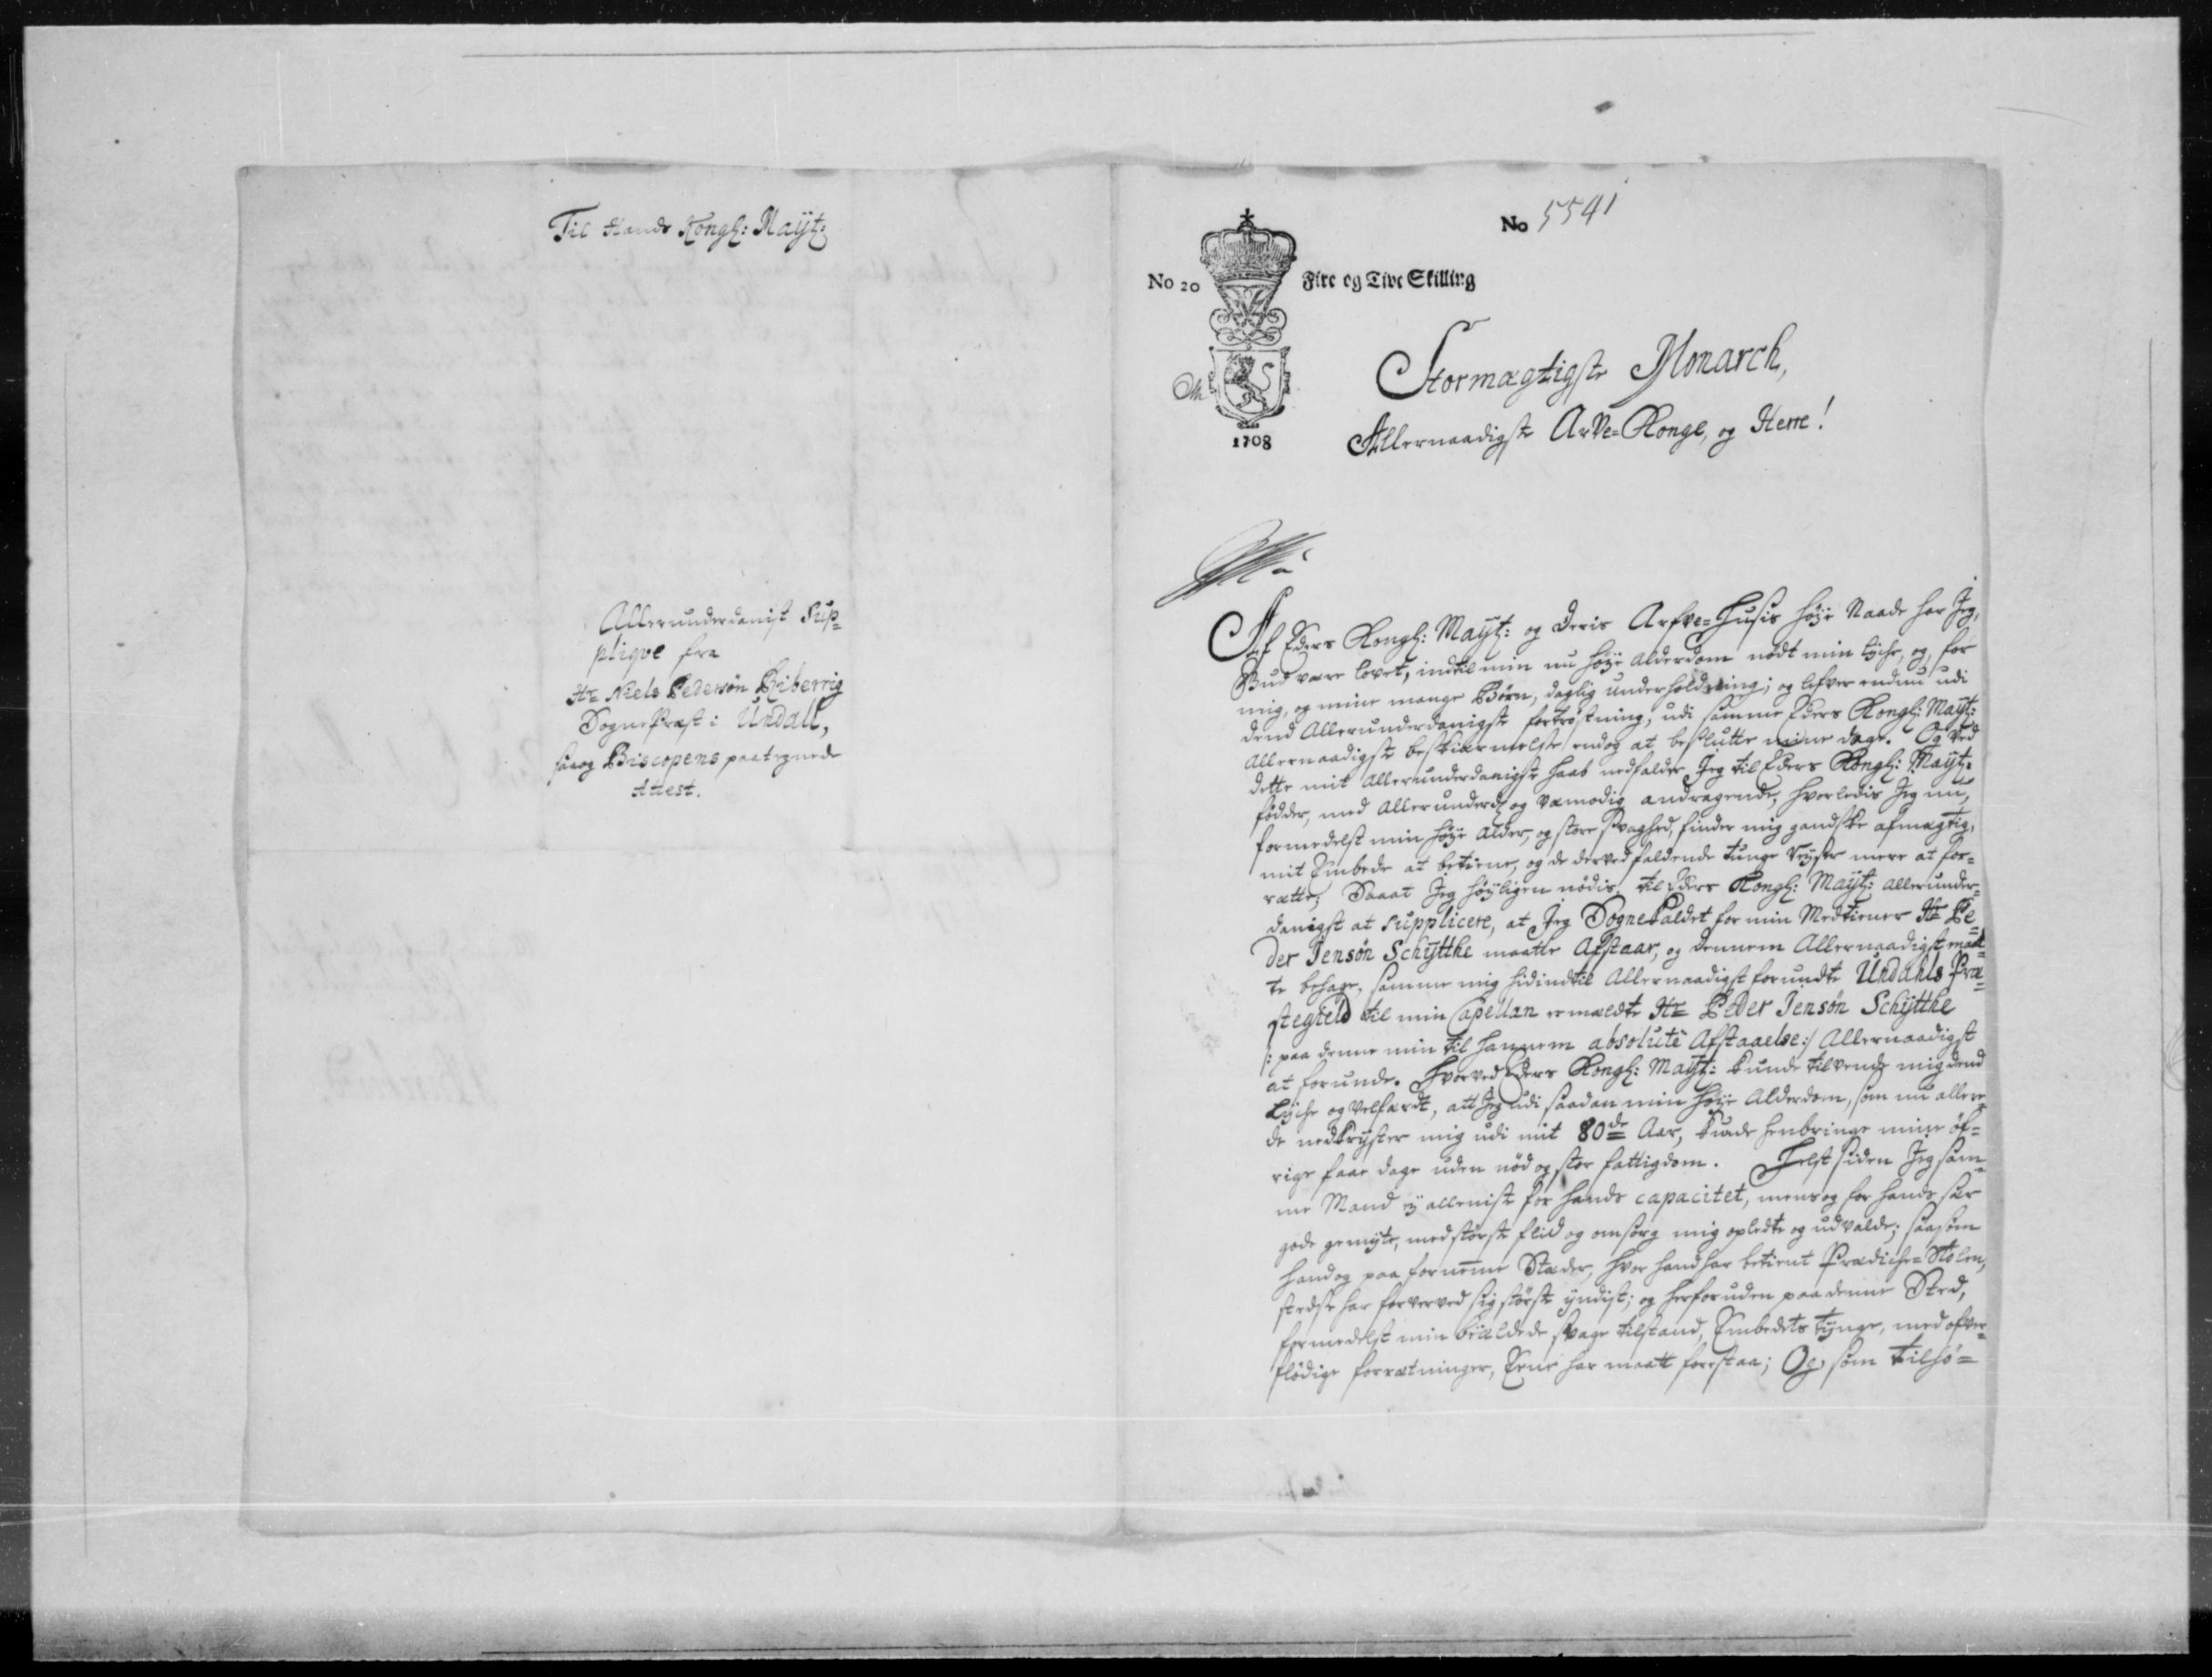 Til Hands Kongl: Maÿt:
Allerunderdanist Sup=
pliqve fra
Hr Niels Pedersøn Biberrig
Sognepræst i Undall,
saaog Biscopens paategnede
Attest.
No 5541
No 20
Fire og Tive Skilling
1708
Stormægtigste Monarch,
Allernaadigste Arve=Konge, og Herre!
Af Eders Kongl: Maÿt: og Deris Arfve=Husis høÿe Naade har Jeg,
Gud være lovet, indtil min nu høÿe alderdom nødt min lÿche, og for
mig, og mine mange Børn, daglig underholdning; og lefver endnu udi
dend Allerunderdanigste fortrøstning, udi samme Eders Kongl: Maÿt:
Allernaadigste beskiermelse endog at beslutte mine dage. Og ved
dette mit Allerunderdanigste haab nedfalder Jeg til Eders Kongl: Maÿt:
fødder, med Allerunderd: og væmodig andragende, hvorledis Jeg nu,
formedelst min høÿe alder, og store svaghed, finder mig gandske afmægtig,
mit Embede at betiene, og de derved faldende tunge Reÿser mere at for=
rætte; Saaat Jeg høÿligen nødis, til Eders Kongl: Maÿt: allerunder=
danigst at supplicere, at Jeg Sognekaldet for min Medtiener Hr Pe=
der Jensøn Schÿtthe maatte Afstaar, og dennem Allernaadigst maat=
te behage, samme mig hidindtil Allernaadigst forundte Undahls Præ=
stegield til min Capellan ermældte Hr Peder Jensøn Schÿtthe
/: paa denne min til hannem absolute Afstaaelse :/ Allernaadigst
at forunde. Hvorved Eders Kongl: Maÿt: kunde tilvende mig dend
Lÿche og velfærdt, att Jeg udi saadan min høÿe Alderdom, som nu allere=
de nedtrÿcker mig udi mit 80de Aar, kunde henbringe mine øf=
rige faae dage uden nød og stor fattigdom. Helst siden Jeg sam=
me Mand eÿ allenist for hands capacitet, mens og for hands sær
gode gemÿte, med største flid og omsorg mig opledte og udvalde; saasom
hand og paa fornemme Stæder, hvor hand har betient Prædiche=Stolen,
stedse har forverved sig største ÿndist; og herforuden paa denne Sted,
formedelst min svage tilstand, Embedets tÿnge, med ofver=
flødige forrætninger, Eene har maatt forestaa; Og som tilhø=